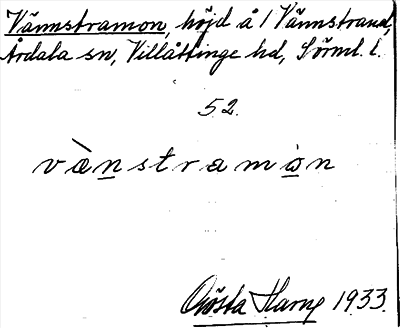 Vännstramon, höjd å 1 Vännstrand,
Årdala sn, Villåttinge hd, Sörml. l.
52.
væ̀nstramòn
Gösta Harng 1933.